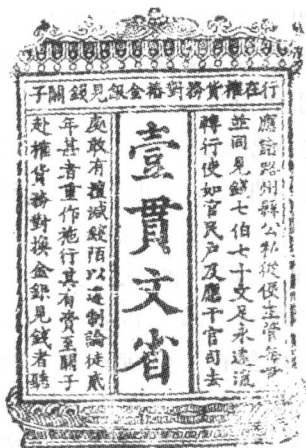 行在榷貨務對樁金銀見錢關子
應諸路州縣公私從便主
並同見錢七伯七十文足永遠流
轉行使如官民戶及應干官司去
壹貫文省
處敢有擅減錢陌以違制論徒貳
年甚者重作施行其有賫至關子
赴榷貨務對換金銀見錢者聽